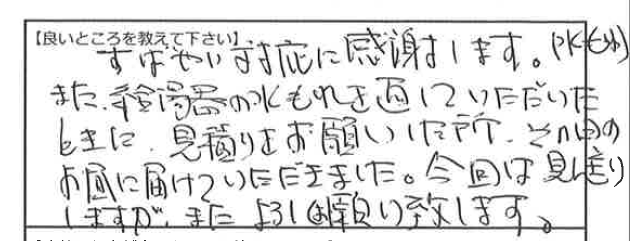 【良いところを教えて下さい】
すばやい対応に感謝します。(水もれ)
また、給湯器の水もれを直していただいた
ときに、見積りをお願いした所、その日の
お昼に届けていただきました。今回は見送り
しますが、またよろしくお願い致します。